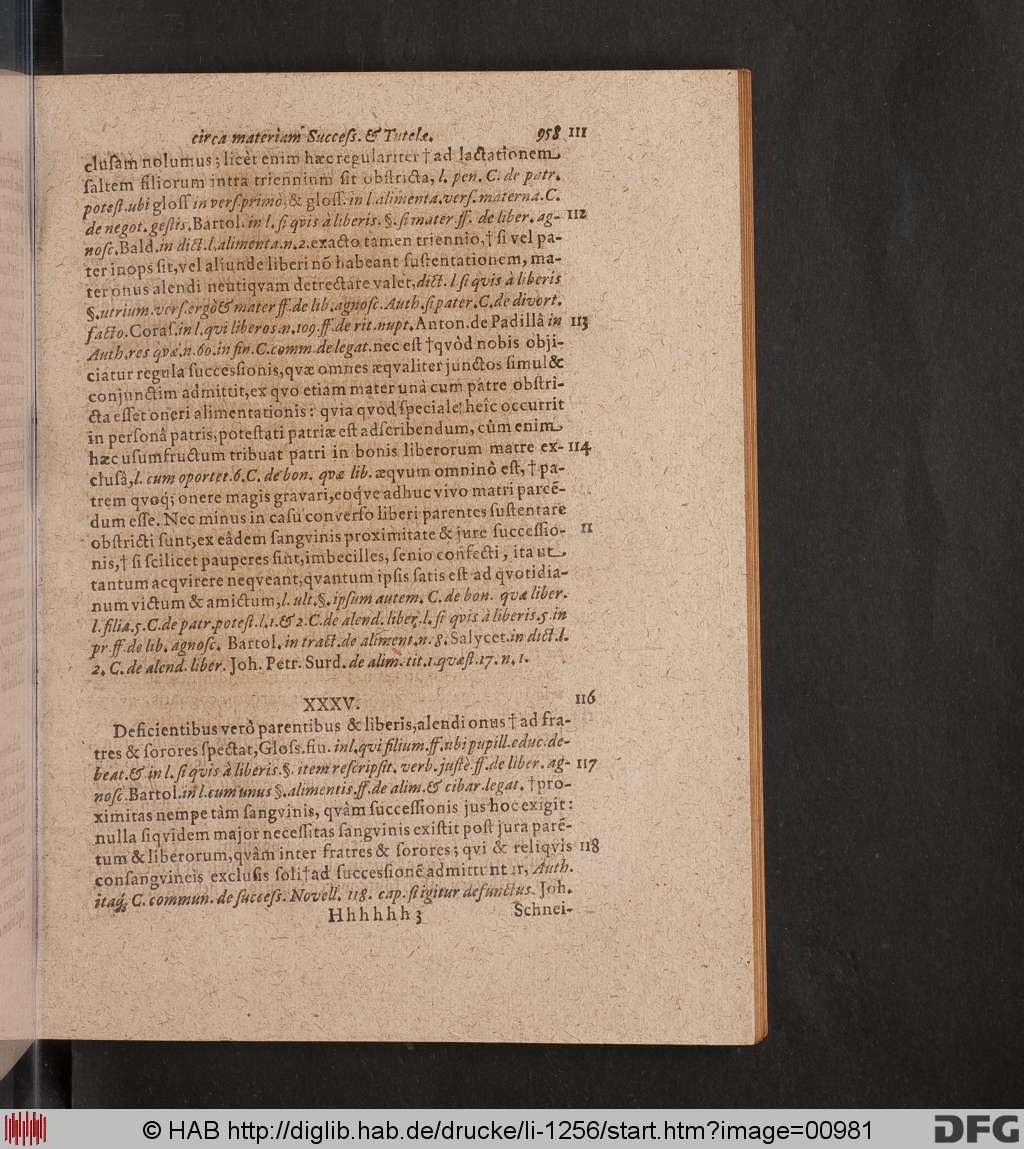 circa materiam Succeſs. & Tutelæ. 958 111
cluſam nolumus; licèt enim hæc regulariter † ad lactationem
ſaltem filiorum intra triennium ſit obſtricta, l. pen. C. de patr.
poteſt. ubi gloſſ in verſ. primò, & gloſſ. in l. alimenta. verſ. materna. C.
de negot. geſtis. Bartol. in l. ſi qvis à liberis. §. ſi mater. ff. de liber. ag- 112
noſc. Bald. in dict. l. alimenta. n. 2. exacto tamen triennio, † ſi vel pa-
ter inops ſit, vel aliunde liberi nō habeant ſuſtentationem, ma-
ter onus alendi neutiqvam detrectare valet, dict. l. ſi qvis à liberis
§. utrium. verſ. ergò & mater ff. de lib. agnoſc. Auth. ſi pater. C. de divort.
facto. Coraſ. in l. qui liberos. n. 109. ff. de rit. nupt. Anton. de Padillâ in 113
Auth. res qvæ. n. 60. in fin. C. comm. de legat. nec eſt † qvòd nobis obji-
ciatur regula ſucceſſionis, qvæ omnes æqvaliter junctos ſimul &
conjunctim admittit, ex qvo etiam mater unà cum patre obſtri-
cta eſſet oneri alimentationis: qvia qvod ſpeciale heîc occurrit
in perſonâ patris, poteſtati patriæ eſt adſcribendum, cùm enim
hæc uſumfructum tribuat patri in bonis liberorum matre ex- 114
cluſâ, l. cum oportet. 6. C. de bon. qvæ lib. æqvum omninò eſt, † pa-
trem qvoq; onere magis gravari, eoqve adhuc vivo matri parcē-
dum eſſe. Nec minus in caſu converſo liberi parentes ſuſtentare
obſtricti ſunt, ex eâdem ſangvinis proximitate & jure ſucceſſio- 11
nis, † ſi ſcilicet pauperes ſint, imbecilles, ſenio confecti, ita ut
tantum acqvirere neqveant, qvantum ipſis ſatis eſt ad qvotidia-
num victum & amictum, l. ult. §. ipſum autem. C. de bon. quæ liber.
l. filia. 5. C. de patr. poteſt. l. 1. & 2. C. de alend. liber. l. ſi qvis à liberis. 5. in
pr. ff. de lib. agnoſc. Bartol. in tract. de aliment. n. 8. Salycet. in dict. l.
2. C. de alend. liber. Joh. Petr. Surd. de alim. tit. 1. quæſt. 17. n. 1.
XXXV. 116
Deficientibus verò parentibus & liberis, alendi onus † ad fra-
tres & ſorores ſpectat, Gloſs. fin. in l. qvi filium. ff. ubi pupill. educ. de-
beat. & in l. ſi qvis à liberis. §. item reſcripſit. verb. juſtè. ff. de liber. ag- 117
noſc. Bartol. in l. cum unus §. alimentis. ff. de alim. & cibar. legat. † pro-
ximitas nempe tàm ſangvinis, qvàm ſucceſſionis jus hoc exigit:
nulla ſiqvidem major neceſſitas ſangvinis exiſtit poſt jura parē-
tum & liberorum, qvâm inter fratres & ſorores; qvi & reliqvis 118
conſangvineis excluſis ſoli † ad ſucceſſionē admittuntur, Auth.
itaq; C. commun. de ſucceſs. Novell. 118. cap. ſi igitur defunctus. Joh.
Hhhhhh 3 Schnei-
© HAB http://diglib.hab.de/drucke/li-1256/start.htm?image=00981 DFG